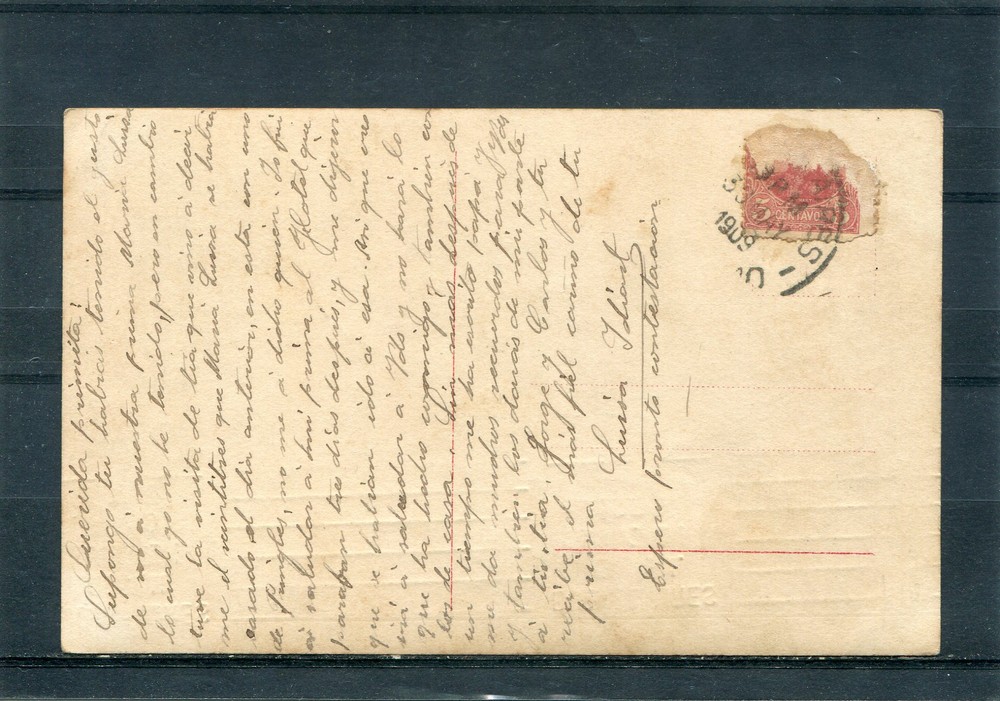 Querida primita;
Supongo tu habrás tenido el gusto
de ver á nuestra prima Maria Luisa
lo cual yo no he tenido, pero en cambio
tuve la visita de tia que vino á decir
me el veintitres que Maria Luisa se habia
casado el dia anterior, en esta con uno
de Pringles, no me á dicho quien. Yo fui
á saludar á mi prima al Hotel que
paraban tres dias después, y me dijeron
que se habian ido á esa. Asi que creo
irá á saludar á Vds y no hará lo
que ha hecho conmigo y tambien con
los de casa. Sin más despues de
un tiempo me ha escrito papá y
me da muchos recuerdos para Vds
y tambien los darás de mi parte
á tu tia, Jorge y Carlos y tu
recibe el más fiel cariño de tu
prima
Luisa Idiart
Espero pronto contestación
5 CENTAVOS 5
3 PM
30
1908